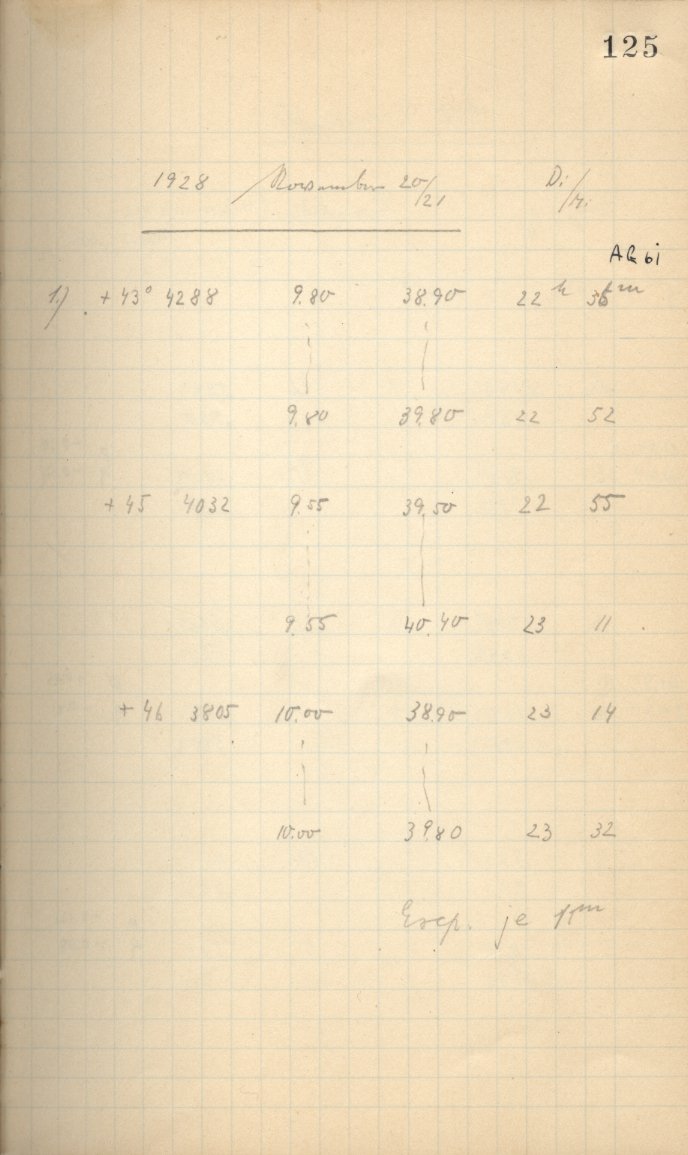 125
1928 November 20/21 Di/Mi
AG bi
1.) +43° 4288 9.80 38.90 22 h m
9.80 39.80 22 52
+45 4032 9.55 39.50 22 55
9.55 40.40 23 11
+46 3805 10.00 38.90 23 14
10.00 39.80 23 32
Exp. je m